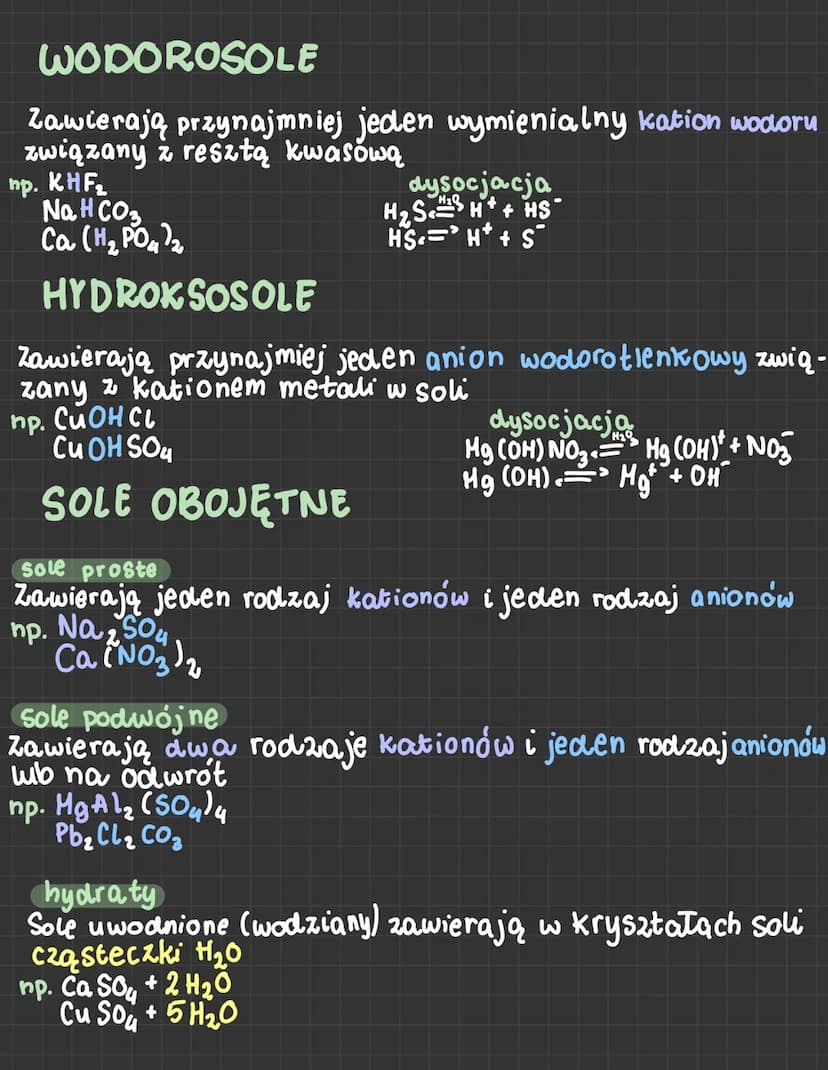 WODOROSOLE
Zawierają przynajmniej jeden wymienialny kation wodoru
związany z resztą kwasową
np. KHF₂
NaHCO₃
Ca(H₂PO₄)₂
dysocjacja
H₂S ⇌ H₂O H⁺ + HS⁻
HS ⇌ H⁺ + S⁻
HYDROKSOSOLE
Zawierają przynajmiej jeden anion wodorotlenkowy zwią-
zany z kationem metali w soli
np. CuOHCl
CuOHSO₄
dysocjacja
Hg(OH)NO₃ ⇌ H₂O Hg(OH)⁺ + NO₃⁻
Hg(OH) ⇌ Hg⁺ + OH⁻
SOLE OBOJĘTNE
sole proste
Zawierają jeden rodzaj kationów i jeden rodzaj anionów
np. Na₂SO₄
Ca(NO₃)₂
sole podwójne
Zawierają dwa rodzaje kationów i jeden rodzaj anionów
lub na odwrót
np. HgAl₂(SO₄)₄
Pb₂Cl₂CO₃
hydraty
Sole uwodnione (wodziany) zawierają w kryształach soli
cząsteczki H₂O
np. CaSO₄ + 2H₂O
CuSO₄ + 5H₂O